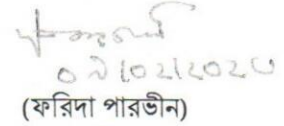 ০৯/০২/২০২৩
(ফরিদা পারভীন)